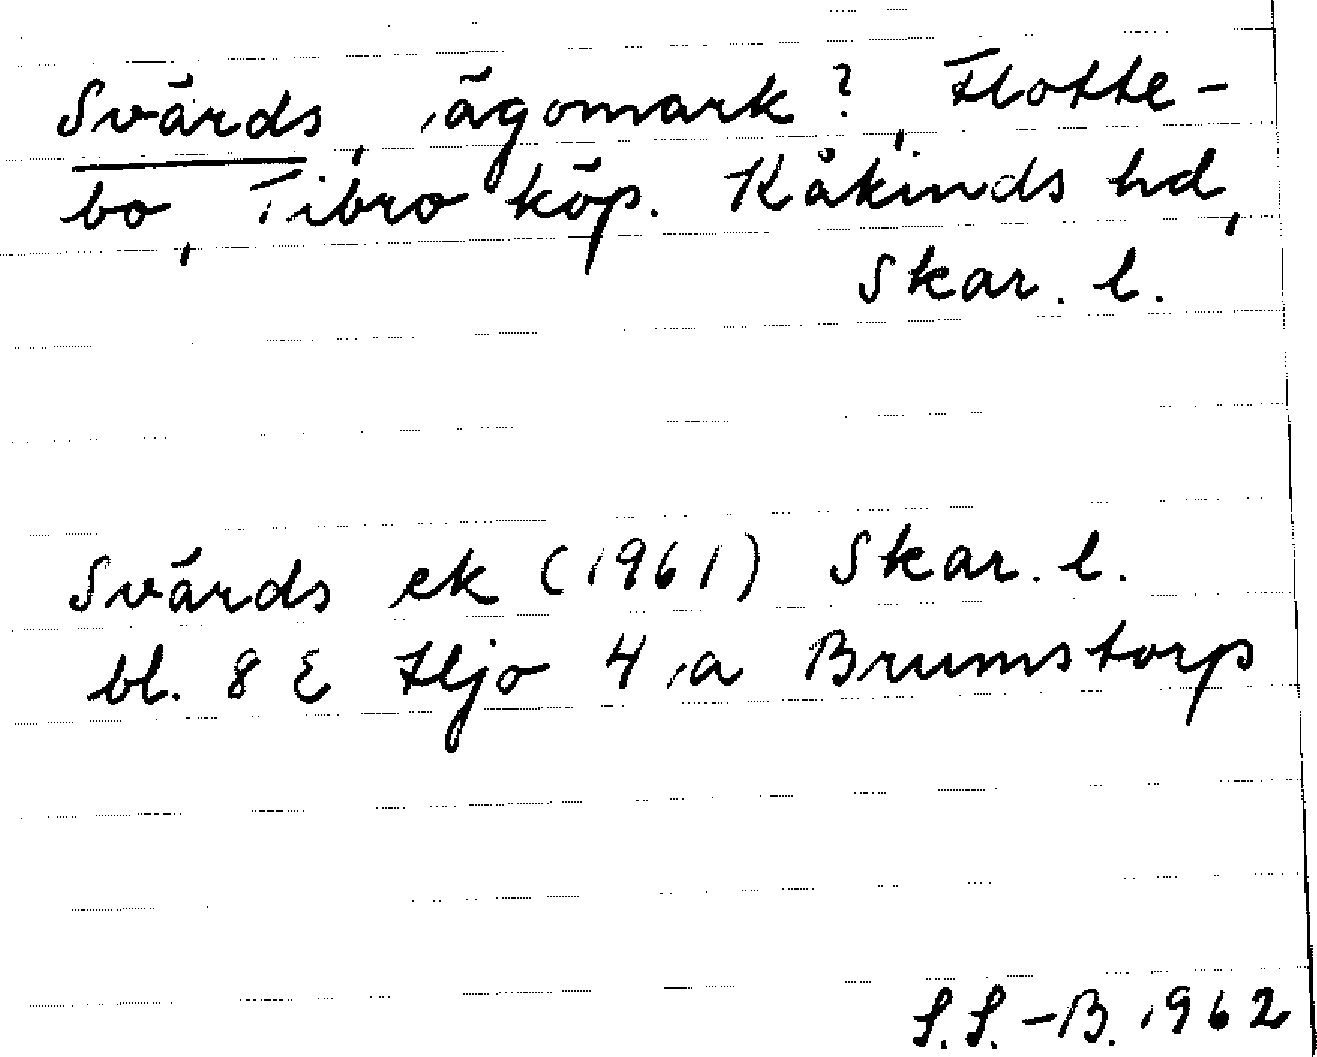 Svärds, ägomark?, Flotte-
bo, Tibro köp. Kåkinds hd,
Skar. l.
Svärds ek (1961) Skar. l.
bl. 8 E Hjo 4 a Brumstorp
S.S.-B. 1962